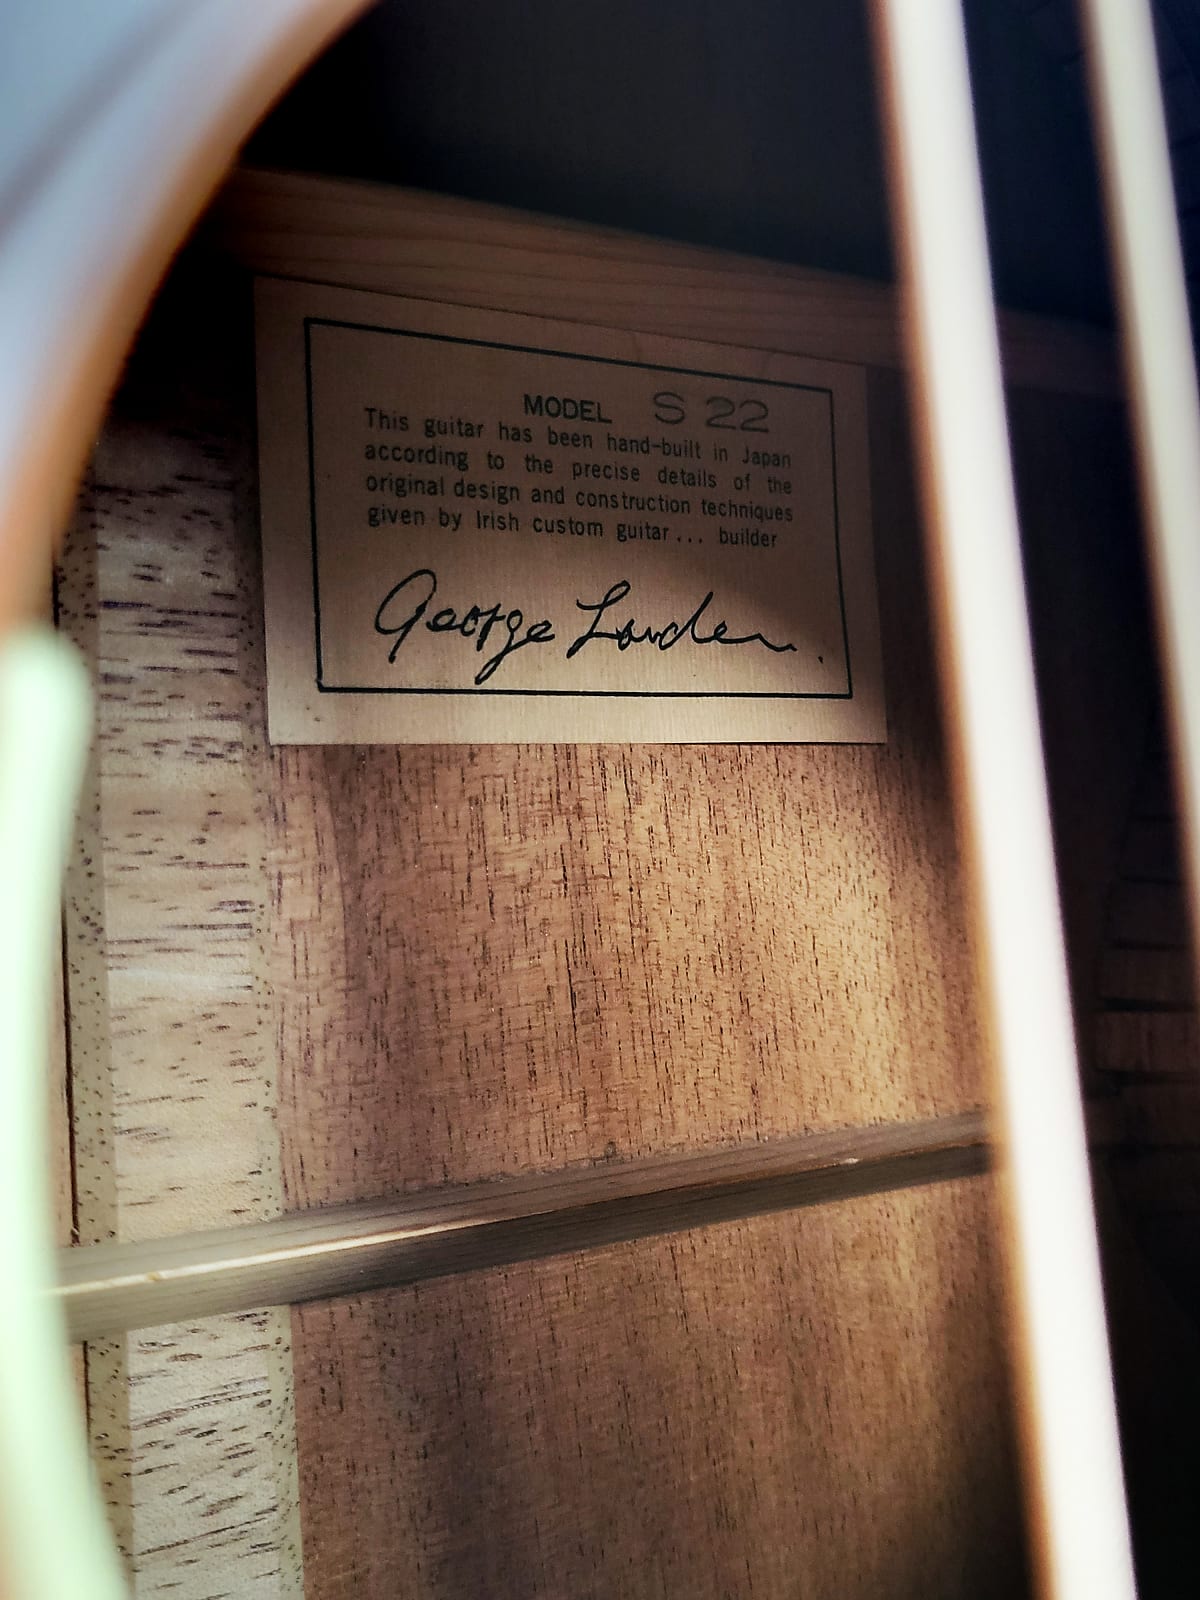 MODEL S 22
This guitar has been hand-built in Japan
according to the precise details of the
original design and construction techniques
given by Irish custom guitar... builder
George Lowden.